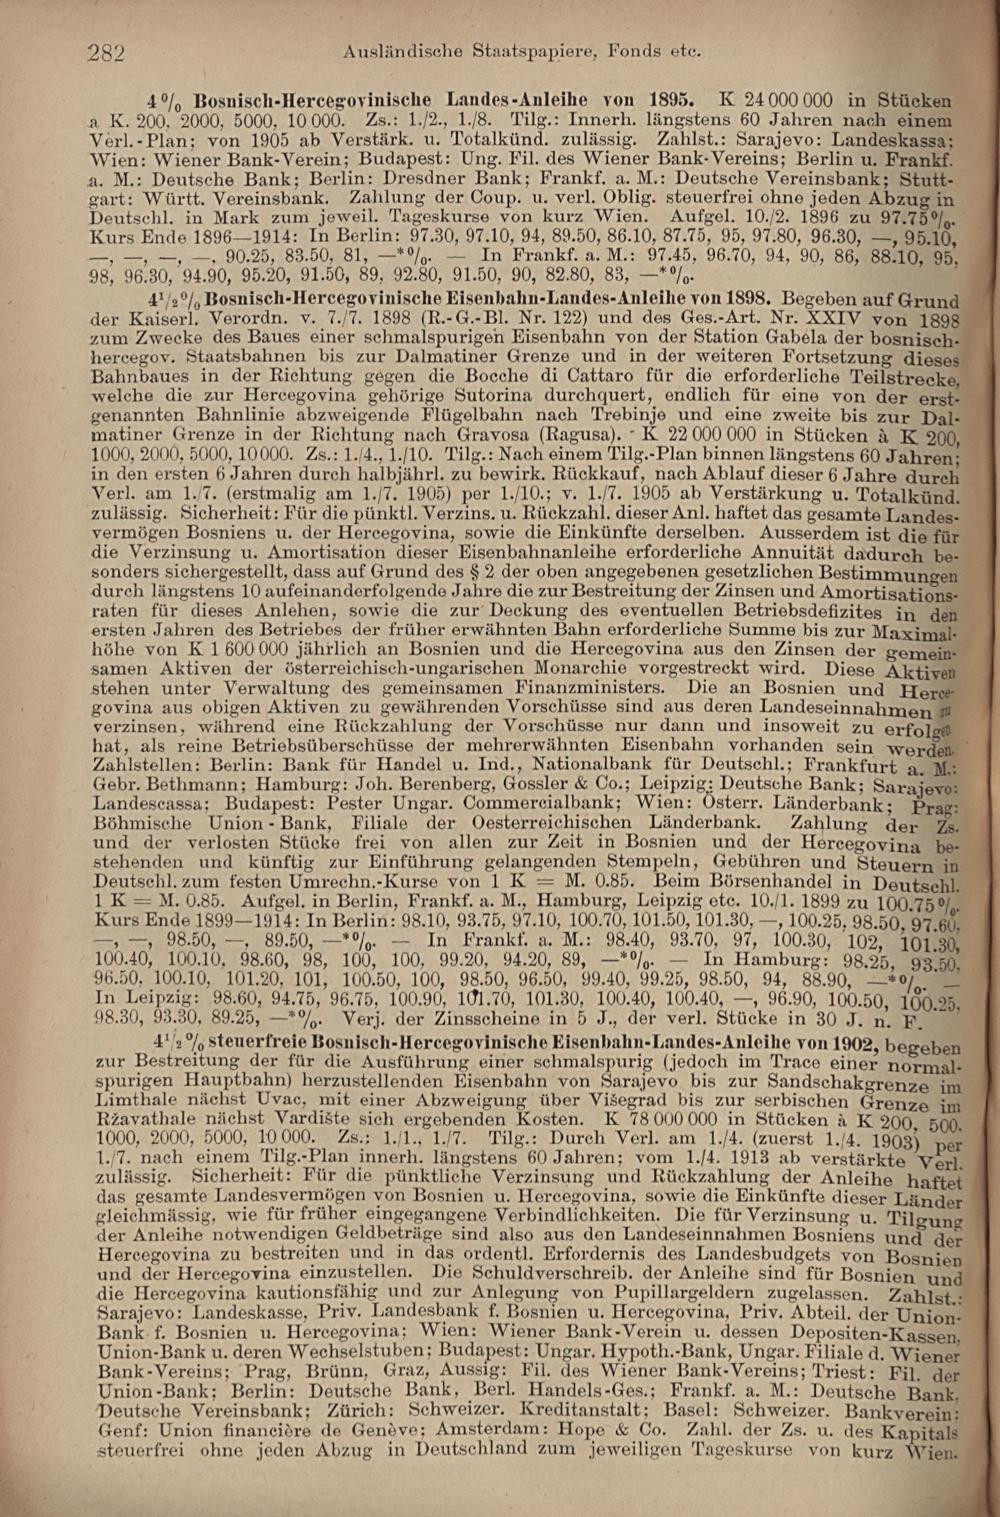 282 Ausländische Staatspapiere, Fonds etc.
4% Bosnisch-Hercegovinische Landes-Anleihe von 1895. K 24 000 000 in Stücken
a K. 200, 2000, 5000, 10 000. Zs.: 1./2., 1./8. Tilg.: Innerh. längstens 60 Jahren nach einem
Verl.-Plan; von 1905 ab Verstärk. u. Totalkünd. zulässig. Zahlst.: Sarajevo: Landeskassa;
Wien: Wiener Bank-Verein; Budapest: Ung. Fil. des Wiener Bank-Vereins; Berlin u. Frankf.
a. M.: Deutsche Bank; Berlin: Dresdner Bank; Frankf. a. M.: Deutsche Vereinsbank; Stutt-
gart: Württ. Vereinsbank. Zahlung der Coup. u. verl. Oblig. steuerfrei ohne jeden Abzug in
Deutschl. in Mark zum jeweil. Tageskurse von kurz Wien. Aufgel. 10./2. 1896 zu 97.75%.
Kurs Ende 1896—1914: In Berlin: 97.30, 97.10, 94, 89.50, 86.10, 87.75, 95, 97.80, 96.30, —, 95.10,
—, —, —, —, 90.25, 83.50, 81, —*%. — In Frankf. a. M.: 97.45, 96.70, 94, 90, 86, 88.10, 95,
98, 96.30, 94.90, 95.20, 91.50, 89, 92.80, 91.50, 90, 82.80, 83, —*%.
4½% Bosnisch-Hercegovinische Eisenbahn-Landes-Anleihe von 1898. Begeben auf Grund
der Kaiserl. Verordn. v. 7./7. 1898 (R.-G.-Bl. Nr. 122) und des Ges.-Art. Nr. XXIV von 1898
zum Zwecke des Baues einer schmalspurigen Eisenbahn von der Station Gabela der bosnisch-
hercegov. Staatsbahnen bis zur Dalmatiner Grenze und in der weiteren Fortsetzung dieses
Bahnbaues in der Richtung gegen die Bocche di Cattaro für die erforderliche Teilstrecke,
welche die zur Hercegovina gehörige Sutorina durchquert, endlich für eine von der erst-
genannten Bahnlinie abzweigende Flügelbahn nach Trebinje und eine zweite bis zur Dal-
matiner Grenze in der Richtung nach Gravosa (Ragusa). K 22 000 000 in Stücken à K 200,
1000, 2000, 5000, 10000. Zs.: 1./4., 1./10. Tilg.: Nach einem Tilg.-Plan binnen längstens 60 Jahren;
in den ersten 6 Jahren durch halbjährl. zu bewirk. Rückkauf, nach Ablauf dieser 6 Jahre durch
Verl. am 1./7. (erstmalig am 1./7. 1905) per 1./10.; v. 1./7. 1905 ab Verstärkung u. Totalkünd.
zulässig. Sicherheit: Für die pünktl. Verzins. u. Rückzahl. dieser Anl. haftet das gesamte Landes-
vermögen Bosniens u. der Hercegovina, sowie die Einkünfte derselben. Ausserdem ist die für
die Verzinsung u. Amortisation dieser Eisenbahnanleihe erforderliche Annuität dadurch be-
sonders sichergestellt, dass auf Grund des § 2 der oben angegebenen gesetzlichen Bestimmungen
durch längstens 10 aufeinanderfolgende Jahre die zur Bestreitung der Zinsen und Amortisations-
raten für dieses Anlehen, sowie die zur Deckung des eventuellen Betriebsdefizites in den
ersten Jahren des Betriebes der früher erwähnten Bahn erforderliche Summe bis zur Maximal-
höhe von K 1 600 000 jährlich an Bosnien und die Hercegovina aus den Zinsen der gemein-
samen Aktiven der österreichisch-ungarischen Monarchie vorgestreckt wird. Diese Aktiven
stehen unter Verwaltung des gemeinsamen Finanzministers. Die an Bosnien und Herce-
govina aus obigen Aktiven zu gewährenden Vorschüsse sind aus deren Landeseinnahmen zu
verzinsen, während eine Rückzahlung der Vorschüsse nur dann und insoweit zu erfolgen
hat, als reine Betriebsüberschüsse der mehrerwähnten Eisenbahn vorhanden sein werden.
Zahlstellen: Berlin: Bank für Handel u. Ind., Nationalbank für Deutschl.; Frankfurt a. M.:
Gebr. Bethmann; Hamburg: Joh. Berenberg, Gossler & Co.; Leipzig: Deutsche Bank; Sarajevo:
Landescassa; Budapest: Pester Ungar. Commercialbank; Wien: Österr. Länderbank; Prag:
Böhmische Union-Bank, Filiale der Oesterreichischen Länderbank. Zahlung der Zs.
und der verlosten Stücke frei von allen zur Zeit in Bosnien und der Hercegovina be-
stehenden und künftig zur Einführung gelangenden Stempeln, Gebühren und Steuern in
Deutschl. zum festen Umrechn.-Kurse von 1 K = M. 0.85. Beim Börsenhandel in Deutschl.
1 K = M. 0.85. Aufgel. in Berlin, Frankf. a. M., Hamburg, Leipzig etc. 10./1. 1899 zu 100.75%.
Kurs Ende 1899—1914: In Berlin: 98.10, 93.75, 97.10, 100.70, 101.50, 101.30, —, 100.25, 98.50, 97.60,
—, —, 98.50, —, 89.50, —*%. — In Frankf. a. M.: 98.40, 93.70, 97, 100.30, 102, 101.30,
100.40, 100.10, 98.60, 98, 100, 100, 99.20, 94.20, 89, —*%. — In Hamburg: 98.25, 93.50,
96.50, 100.10, 101.20, 101, 100.50, 100, 98.50, 96.50, 99.40, 99.25, 98.50, 94, 88.90, —*%. —
In Leipzig: 98.60, 94.75, 96.75, 100.90, 101.70, 101.30, 100.40, 100.40, —, 96.90, 100.50, 100.25,
98.30, 93.30, 89.25, —*%. Verj. der Zinsscheine in 5 J., der verl. Stücke in 30 J. n. F.
4½% steuerfreie Bosnisch-Hercegovinische Eisenbahn-Landes-Anleihe von 1902, begeben
zur Bestreitung der für die Ausführung einer schmalspurig (jedoch im Trace einer normal-
spurigen Hauptbahn) herzustellenden Eisenbahn von Sarajevo bis zur Sandschakgrenze im
Limthale nächst Uvac, mit einer Abzweigung über Višegrad bis zur serbischen Grenze im
Ržavathale nächst Vardište sich ergebenden Kosten. K 78 000 000 in Stücken à K 200, 500,
1000, 2000, 5000, 10 000. Zs.: 1./1., 1./7. Tilg.: Durch Verl. am 1./4. (zuerst 1./4. 1903) per
1./7. nach einem Tilg.-Plan innerh. längstens 60 Jahren; vom 1./4. 1913 ab verstärkte Verl.
zulässig. Sicherheit: Für die pünktliche Verzinsung und Rückzahlung der Anleihe haftet
das gesamte Landesvermögen von Bosnien u. Hercegovina, sowie die Einkünfte dieser Länder
gleichmässig, wie für früher eingegangene Verbindlichkeiten. Die für Verzinsung u. Tilgung
der Anleihe notwendigen Geldbeträge sind also aus den Landeseinnahmen Bosniens und der
Hercegovina zu bestreiten und in das ordentl. Erfordernis des Landesbudgets von Bosnien
und der Hercegovina einzustellen. Die Schuldverschreib. der Anleihe sind für Bosnien und
die Hercegovina kautionsfähig und zur Anlegung von Pupillargeldern zugelassen. Zahlst.:
Sarajevo: Landeskasse, Priv. Landesbank f. Bosnien u. Hercegovina, Priv. Abteil. der Union-
Bank f. Bosnien u. Hercegovina; Wien: Wiener Bank-Verein u. dessen Depositen-Kassen,
Union-Bank u. deren Wechselstuben; Budapest: Ungar. Hypoth.-Bank, Ungar. Filiale d. Wiener
Bank-Vereins; Prag, Brünn, Graz, Aussig: Fil. des Wiener Bank-Vereins; Triest: Fil. der
Union-Bank; Berlin: Deutsche Bank, Berl. Handels-Ges.; Frankf. a. M.: Deutsche Bank,
Deutsche Vereinsbank; Zürich: Schweizer. Kreditanstalt; Basel: Schweizer. Bankverein;
Genf: Union financière de Genève; Amsterdam: Hope & Co. Zahl. der Zs. u. des Kapitals
steuerfrei ohne jeden Abzug in Deutschland zum jeweiligen Tageskurse von kurz Wien.